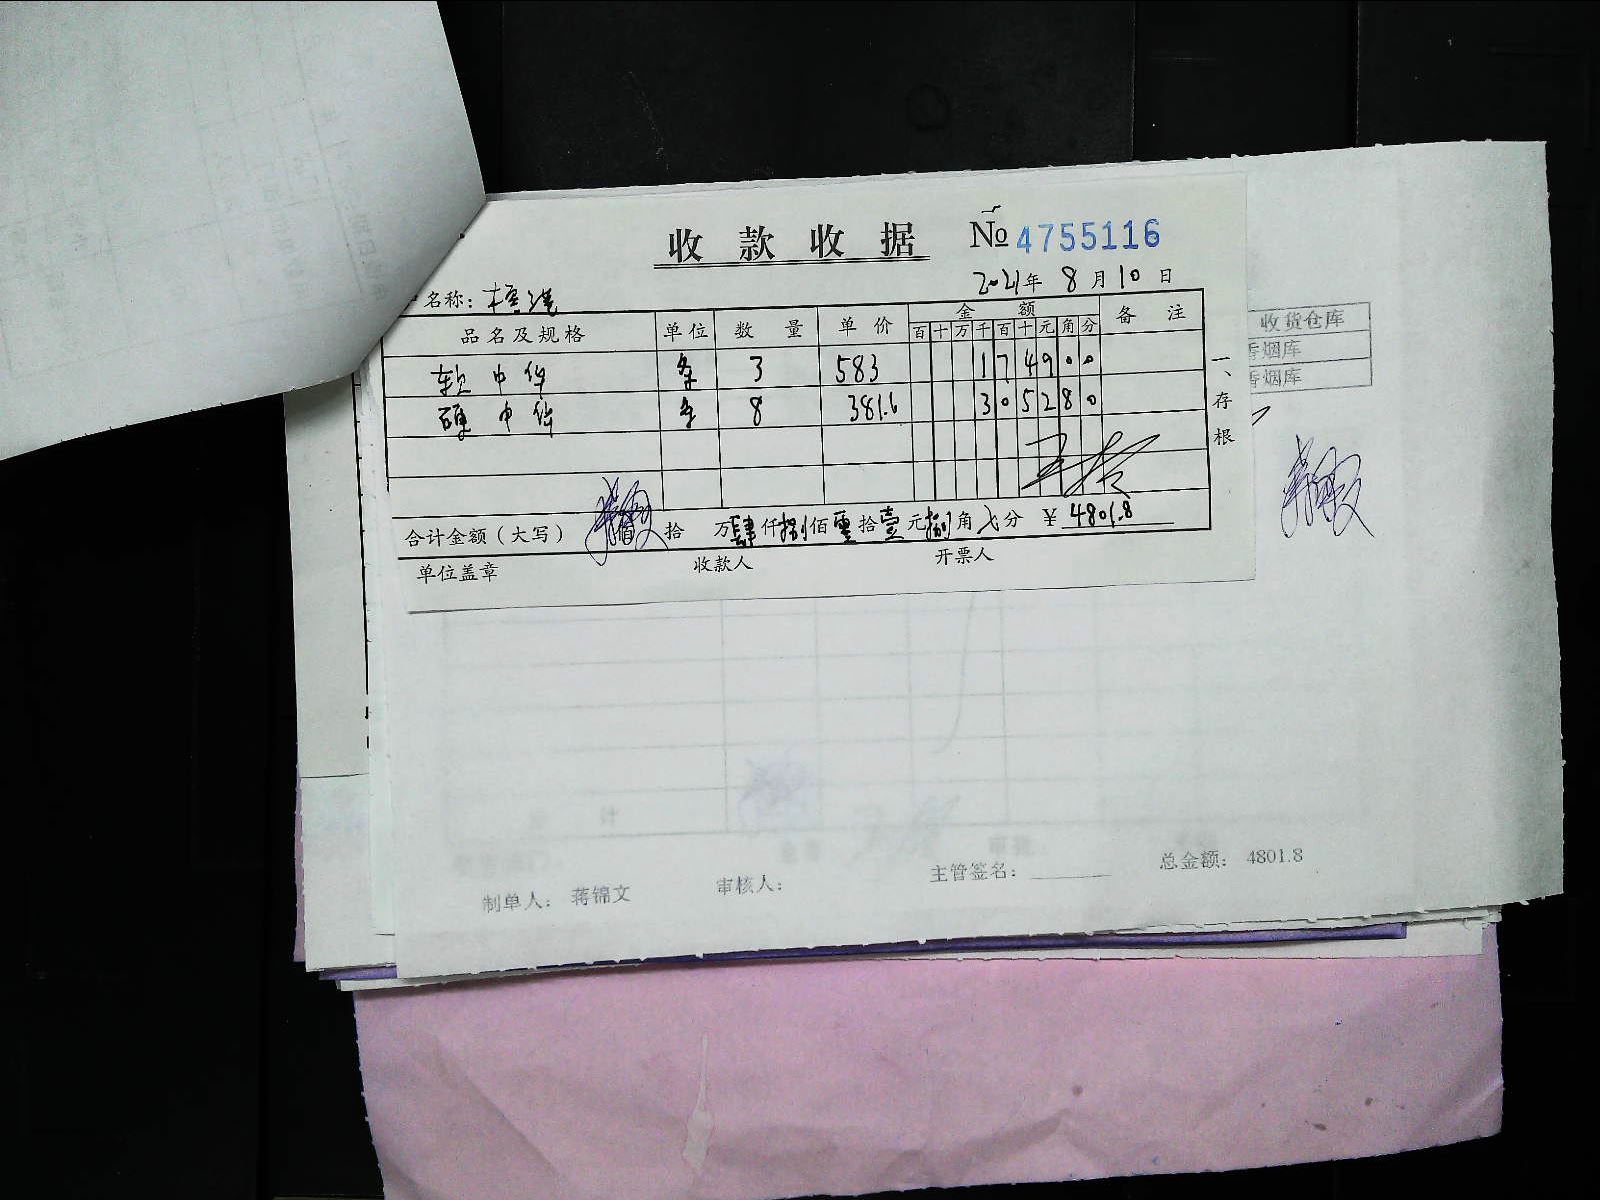 收款收据 № 4755116
2021年 8月 10日
名称：
品名及规格 单位 数量 单价 金额 备注
百 十 万 千 百 十 元 角 分
软中华 条 3 583 1 7 4 9 0 0
硬中华 条 8 381.6 3 0 5 2 8 0
合计金额（大写） 佰 拾 万 肆 仟 捌 佰 零 拾 壹 元 捌 角 分 ￥ 4801.8
单位盖章 收款人 开票人
一、存根
收货仓库
香烟库
香烟库
计
制单人： 蒋锦文 审核人： 主管签名： 总金额： 4801.8